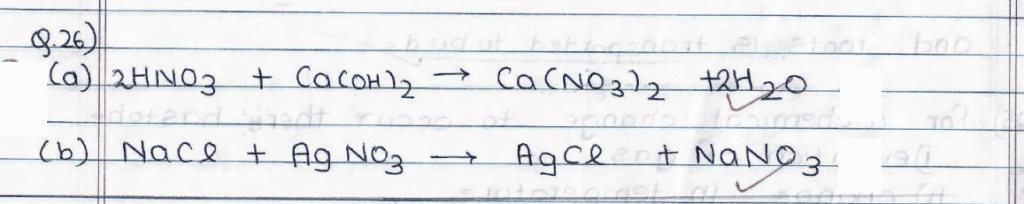 Q.26)
(a) 2HNO3 + Ca(OH)2 → Ca(NO3)2 +2H2O
(b) NaCl + AgNO3 → AgCl + NaNO3